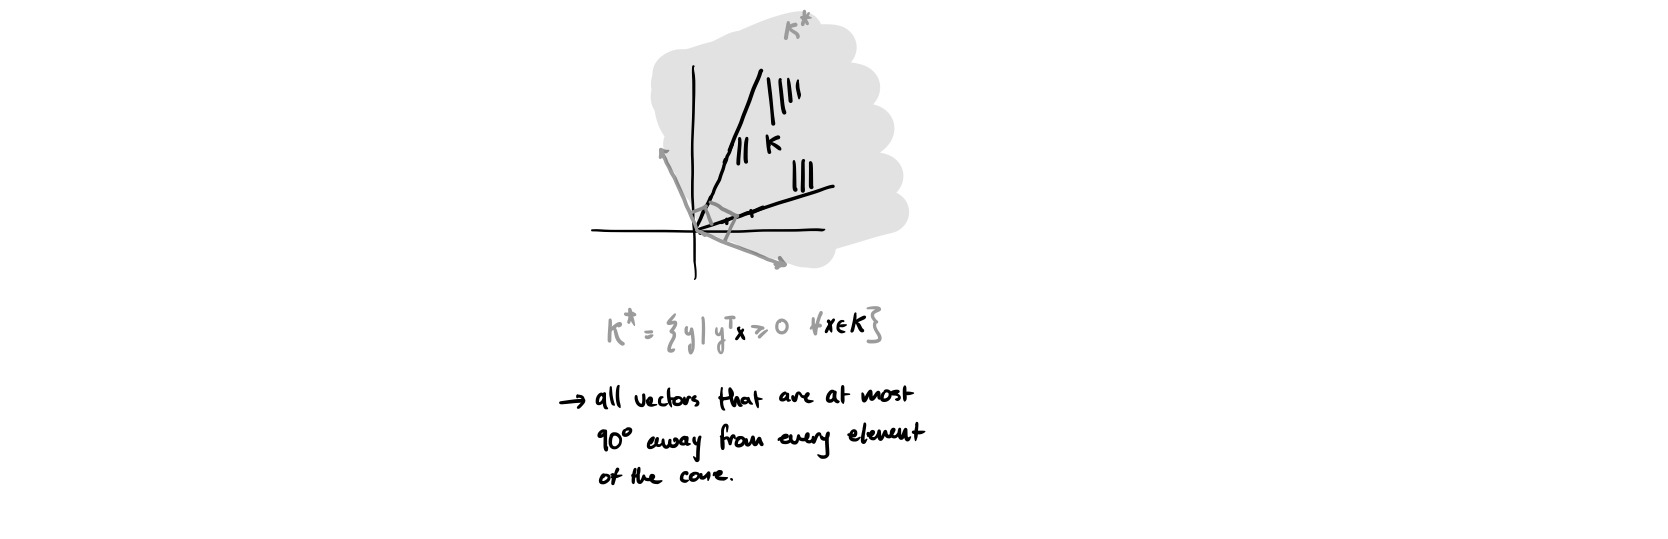 K*
K
K* = {y | yᵀx ⩾ 0 ∀x∈K}
→ all vectors that are at most
90° away from every element
of the cone.